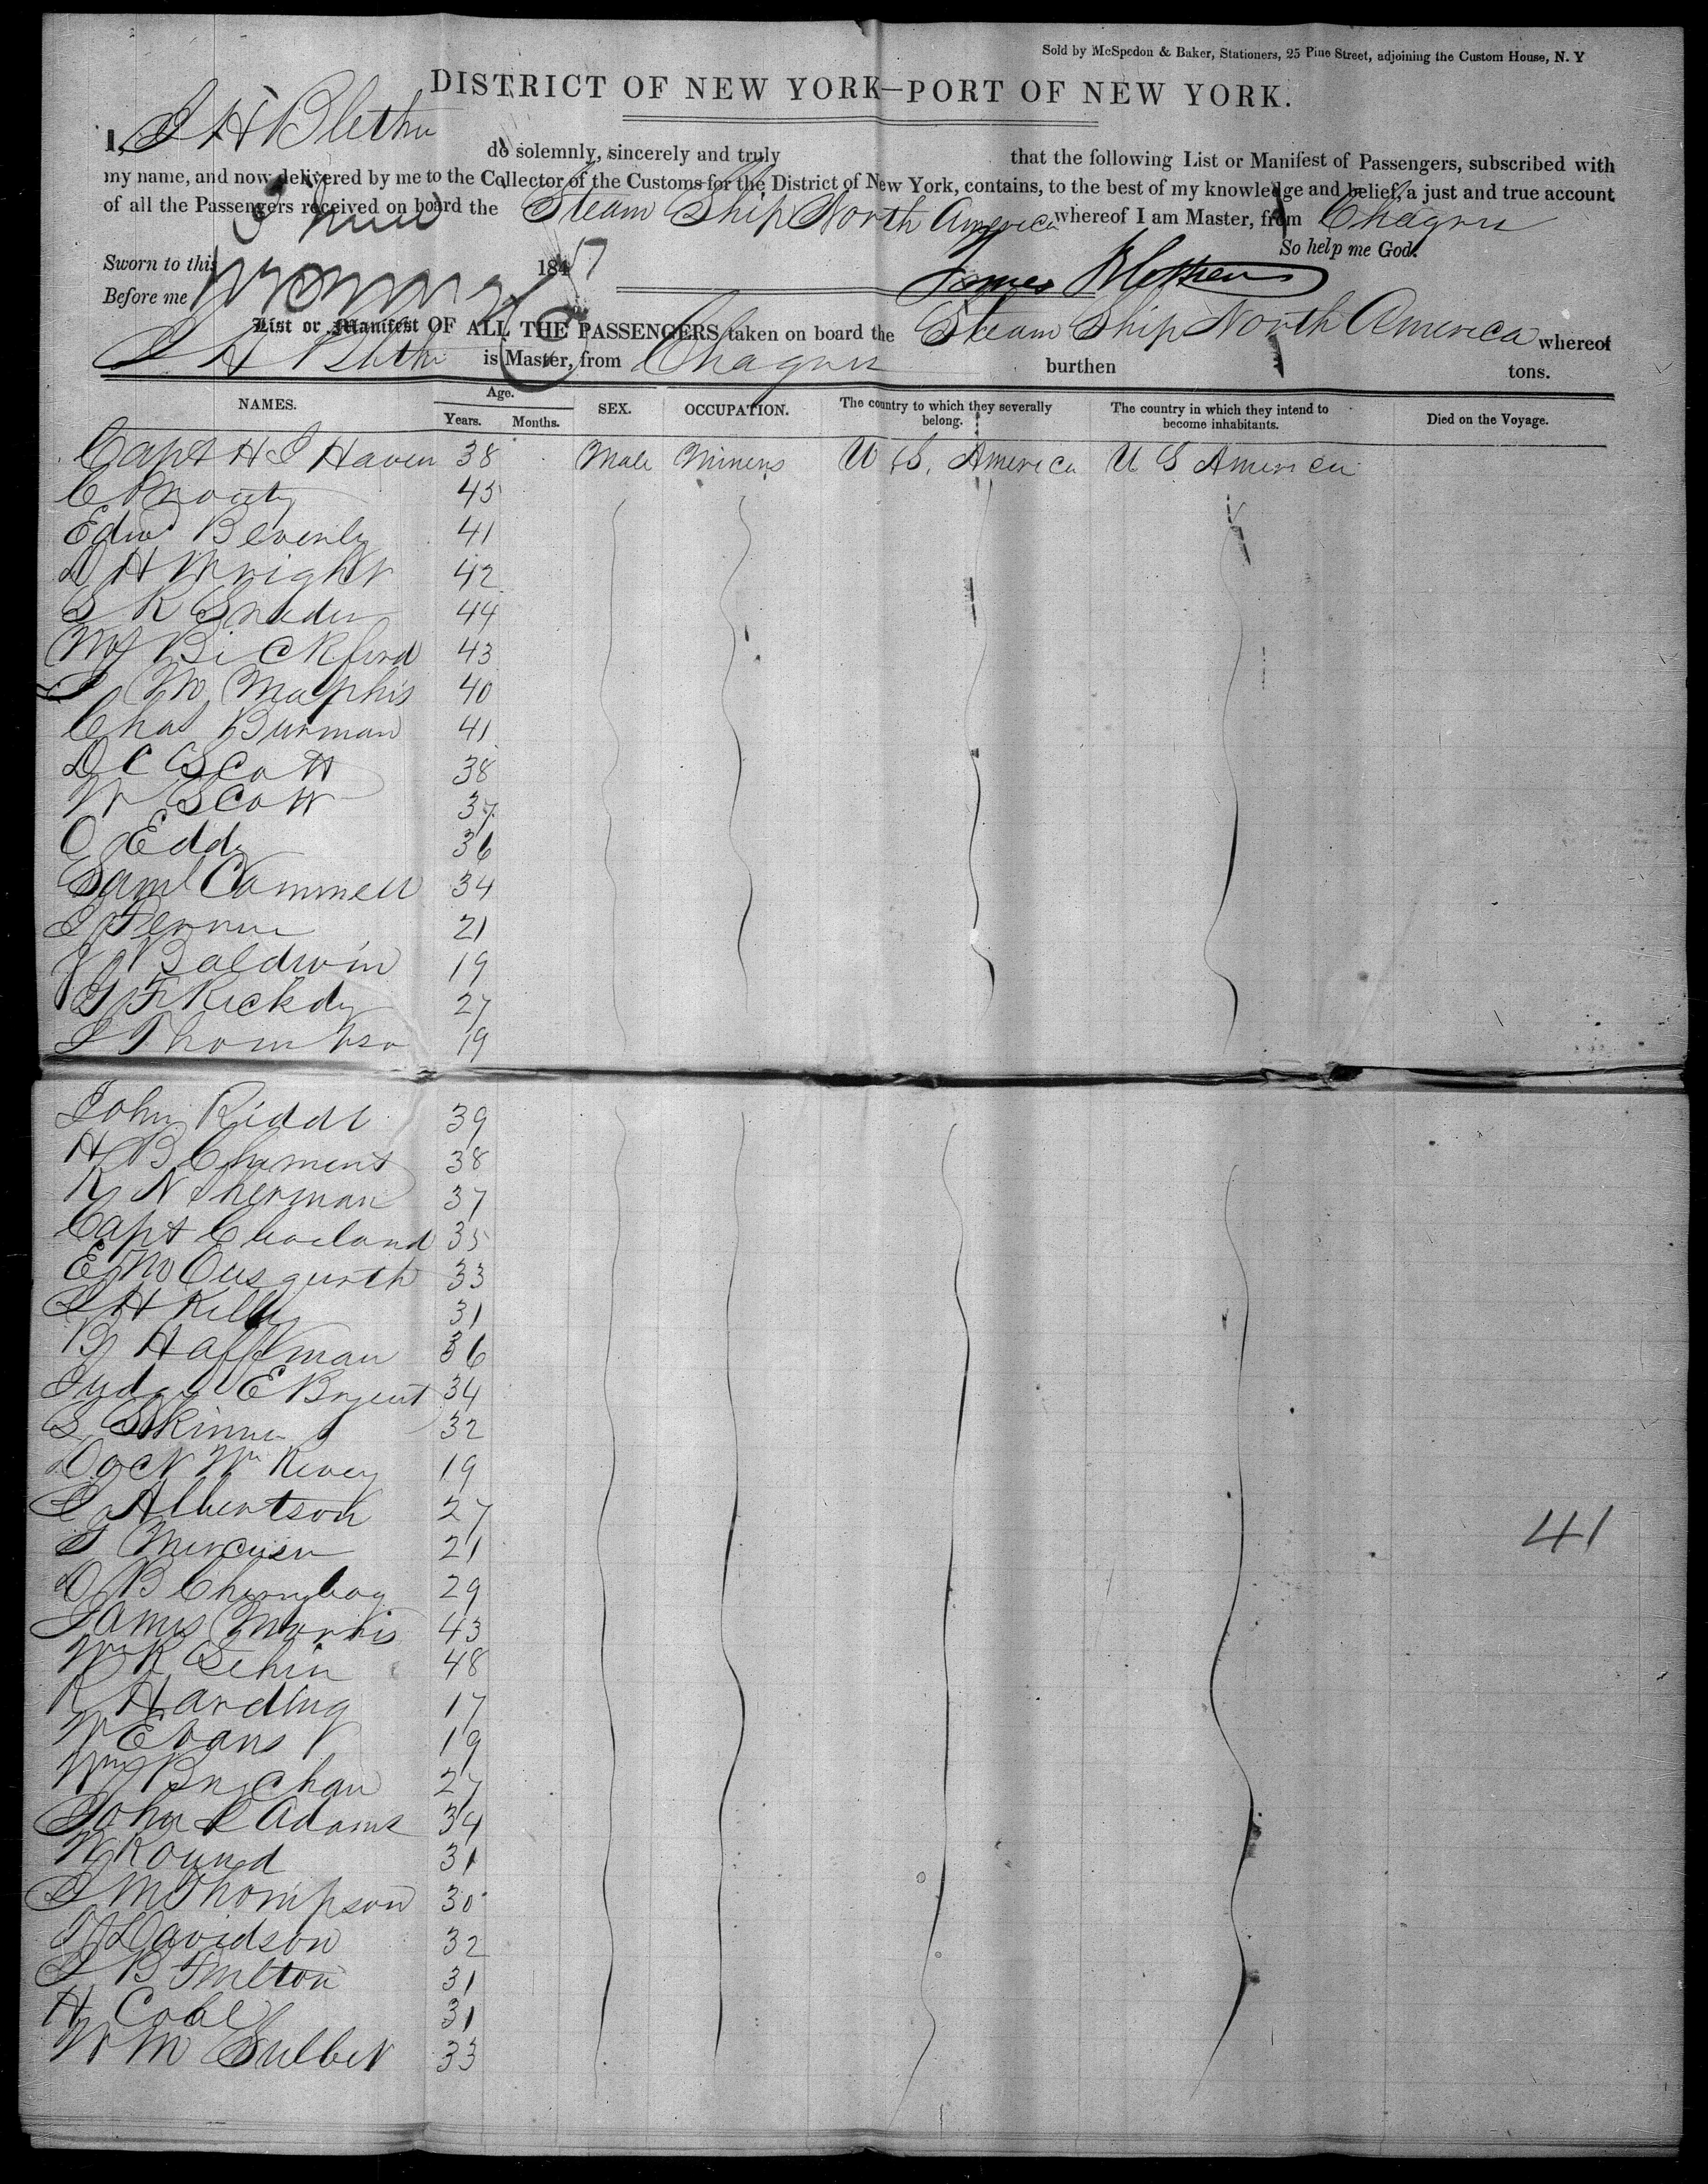 Sold by McSpedon & Baker, Stationers, 25 Pine Street, adjoining the Custom House, N. Y
DISTRICT OF NEW YORK—PORT OF NEW YORK.
I, J H Blethen do solemnly, sincerely and truly that the following List or Manifest of Passengers, subscribed with
my name, and now delivered by me to the Collector of the Customs for the District of New York, contains, to the best of my knowledge and belief, a just and true account
of all the Passengers received on board the Steam Ship North America whereof I am Master, from Chagres
So help me God.
Sworn to this 184
Before me James H Blethen
List or Manifest OF ALL THE PASSENGERS taken on board the Steam Ship North America whereof
J H Blethen is Master, from Chagres burthen tons.
NAMES. Age. Years. Months. SEX. OCCUPATION. The country to which they severally belong. The country in which they intend to become inhabitants. Died on the Voyage.
Capt H J Haven 38 Male Miners U S. America U S America
C 45
Edwd Beverly 41
D H Wright 42
S R Sneden 44
Bickford 43
J M Maphis 40
Chas Burman 41
D C Scott 38
W Scott 37
O Eddy 36
Saml Cammell 34
J 21
J Baldwin 19
27
J Thompson 19
John Riddl 39
H B 38
R N Sherman 37
Capt Cleveland 35
E M 33
J H Kelly 31
B Haffman 36
Judge E Bryent 34
S Skinner 32
Doct Wm 19
J Albertson 27
21
D B 29
James Morris 43
Wm R 48
R Harding 17
W Evans 19
Wm 27
John L Adams 34
W Round 31
J M Thompson 30
T Davidson 32
J B 31
H Coal 31
W M 33
41